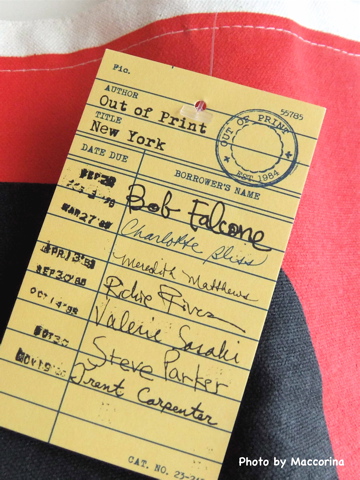 Fic.
55785
AUTHOR
Out of Print
TITLE
New York
OUT OF PRINT
EST. 1984
DATE DUE
BORROWER'S NAME
Bob Falcone
Charlotte Bliss
MAR 27
Meredith Matthews
APR 13
Richie Rivera
SEP 30
Valerie Sasaki
OCT 14
Steve Parker
NOV 19
Trent Carpenter
CAT. NO. 23-
Photo by Maccorina